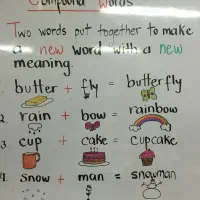 Compound Words
Two words put together to make
a new word with a new
meaning.
butter + fly = butterfly
2. rain + bow = rainbow
3. cup + cake = cupcake
4. snow + man = snowman